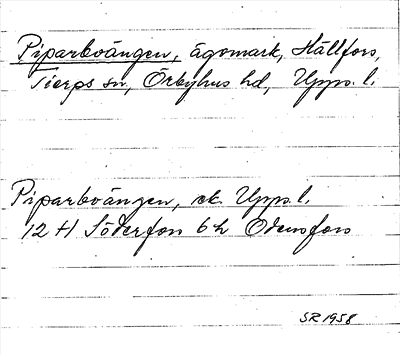 Piparboängen, ägomark, Hållfors,
Tierps sn, Örbyhus hd, Upps. l.
Piparboängen, ek. Upps. l.
12 H Söderfors 6 h Odensfors
SR 1958